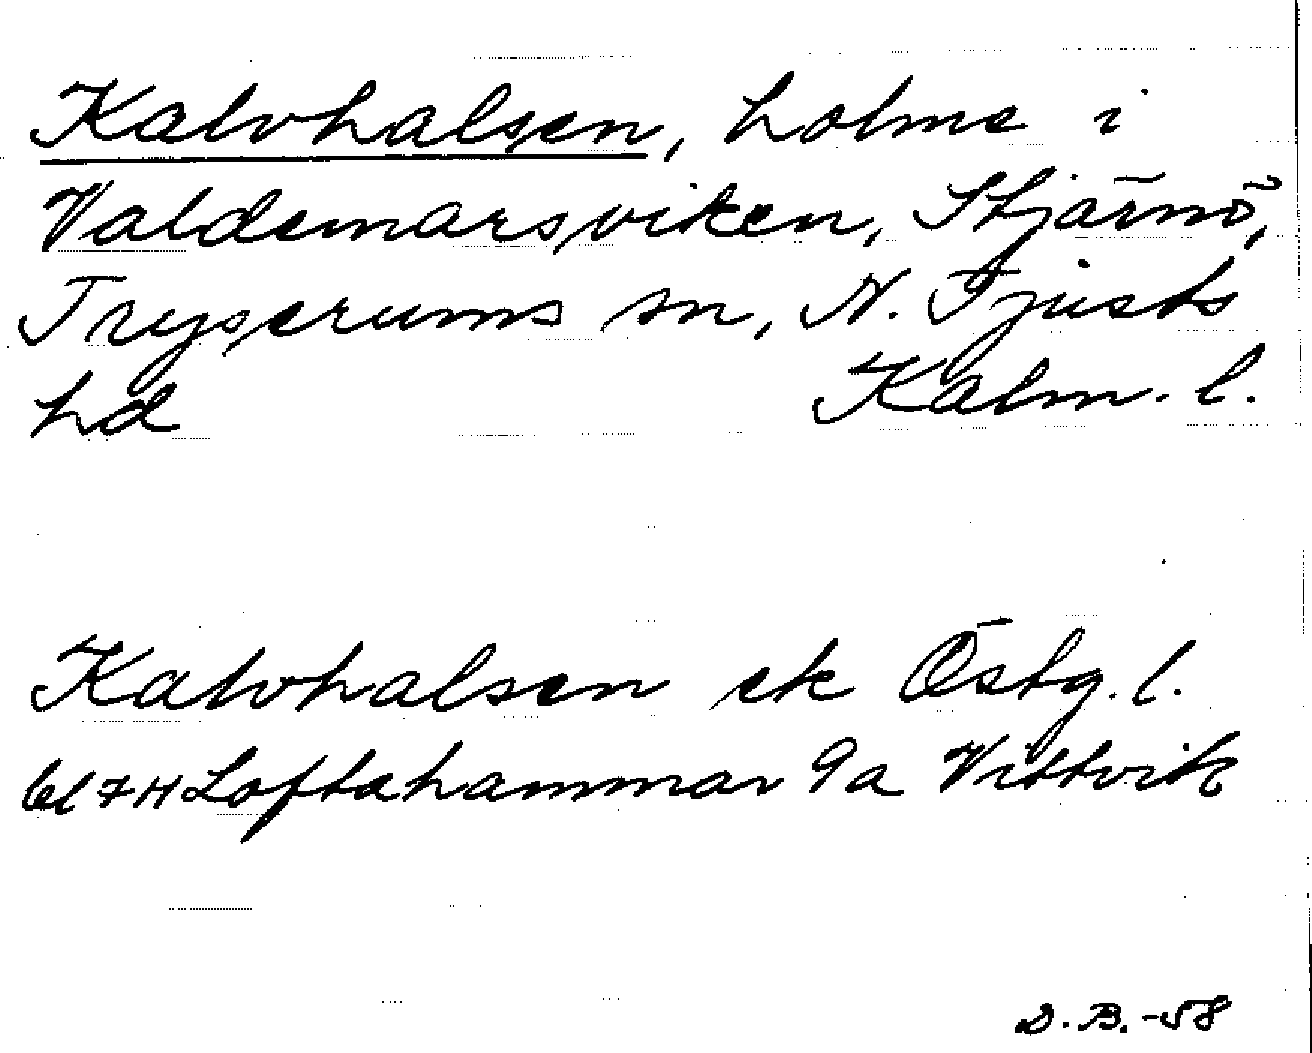 Kalvhalsen, holme i
Valdemarsviken, Stjärnö,
Tryserums sn, N. Tjusts
hd Kalm. l.
Kalvhalsen ek Östg. l.
Loftahammar 9a Vittvik
D. B. -58